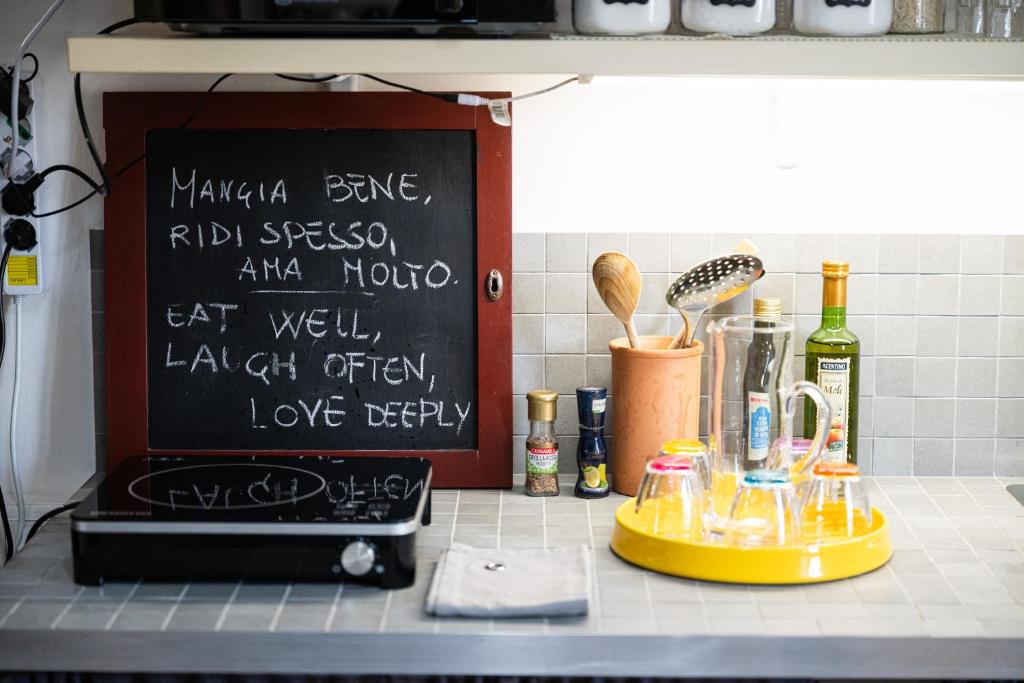 MANGIA BENE,
RIDI SPESSO,
AMA MOLTO.
EAT WELL,
LAUGH OFTEN,
LOVE DEEPLY
CANNAMELA
ACENTINO
Mele